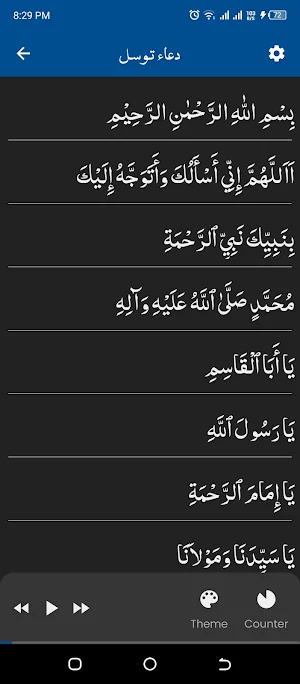 8:29 PM
72
دعاء توسل
بِسْمِ اللّٰهِ الرَّحْمٰنِ الرَّحِيْمِ
اَاَللَّهُمَّ إِنِّي أَسْأَلُكَ وَأَتَوَجَّهُ إِلَيْكَ
بِنَبِيِّكَ نَبِيِّ ٱلرَّحْمَةِ
مُحَمَّدٍ صَلَّىٰ ٱللَّهُ عَلَيْهِ وَآلِهِ
يَا أَبَا ٱلْقَاسِمِ
يَا رَسُولَ ٱللَّهِ
يَا إِمَامَ ٱلرَّحْمَةِ
يَا سَيِّدَنَا وَمَوْلَانَا
Theme
Counter